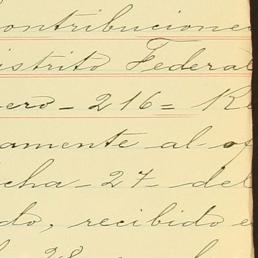 contribuciones
istrito Federal
ero - 216 = Re
amente al of
cha - 27 - del
do, recibido e
28